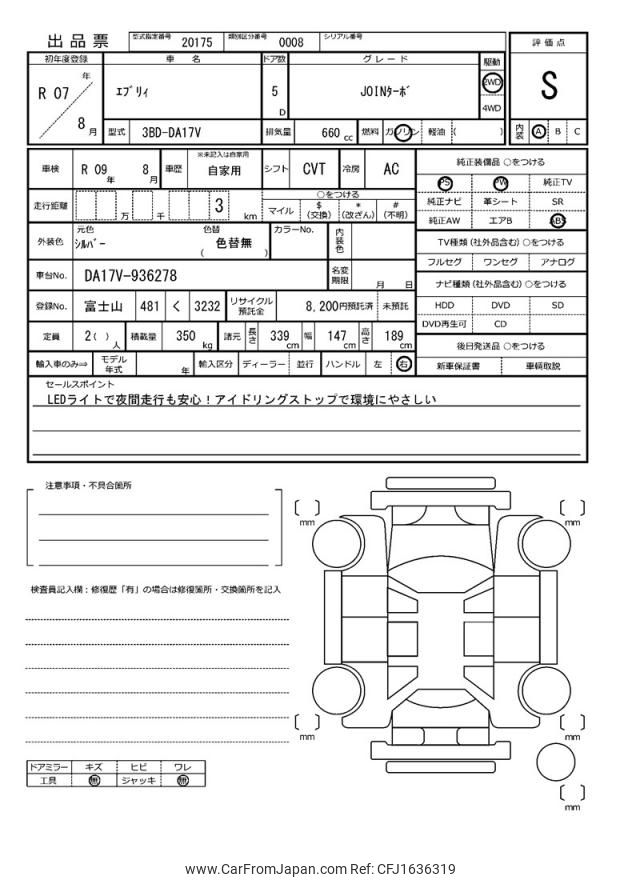 出品票
型式指定番号 20175 類別区分番号 0008 シリアル番号
評価点
S
内装 A B C
初年度登録 車名 ドア数 グレード 駆動
R 07 年 8 月
ｴﾌﾞﾘｨ
5 D
JOINﾀｰﾎﾞ
2WD
4WD
型式 3BD-DA17V 排気量 660 cc 燃料 ガソリン 軽油 ( )
車検 R 09 年 8 月 車歴 ※未記入は自家用 自家用 シフト CVT 冷房 AC
走行距離 万 千 3 km
○をつける
マイル $(交換) *(改ざん) #(不明)
外装色 元色 ｼﾙﾊﾞｰ 色替 ( 色替無 ) カラーNo. 内装色
車台No. DA17V-936278 名変期限 月 日
登録No. 富士山 481 く 3232 リサイクル預託金 8,200円預託済 未預託
定員 2( ) 人 積載量 350 kg 諸元 長さ 339 cm 幅 147 cm 高さ 189 cm
輸入車のみ⇒ モデル年式 年 輸入区分 ディーラー 並行 ハンドル 左 右
純正装備品 ○をつける
PS PW 純正TV
純正ナビ 革シート SR
純正AW エアB ABS
TV種類 (社外品含む) ○をつける
フルセグ ワンセグ アナログ
ナビ種類 (社外品含む) ○をつける
HDD DVD SD
DVD再生可 CD
後日発送品 ○をつける
新車保証書 車輌取説
セールスポイント
LEDライトで夜間走行も安心！アイドリングストップで環境にやさしい
注意事項・不具合箇所
検査員記入欄：修復歴「有」の場合は修復箇所・交換箇所を記入
mm
mm
mm
mm
mm
ドアミラー キズ ヒビ ワレ
工具 無 ジャッキ 無
www.CarFromJapan.com Ref: CFJ1636319